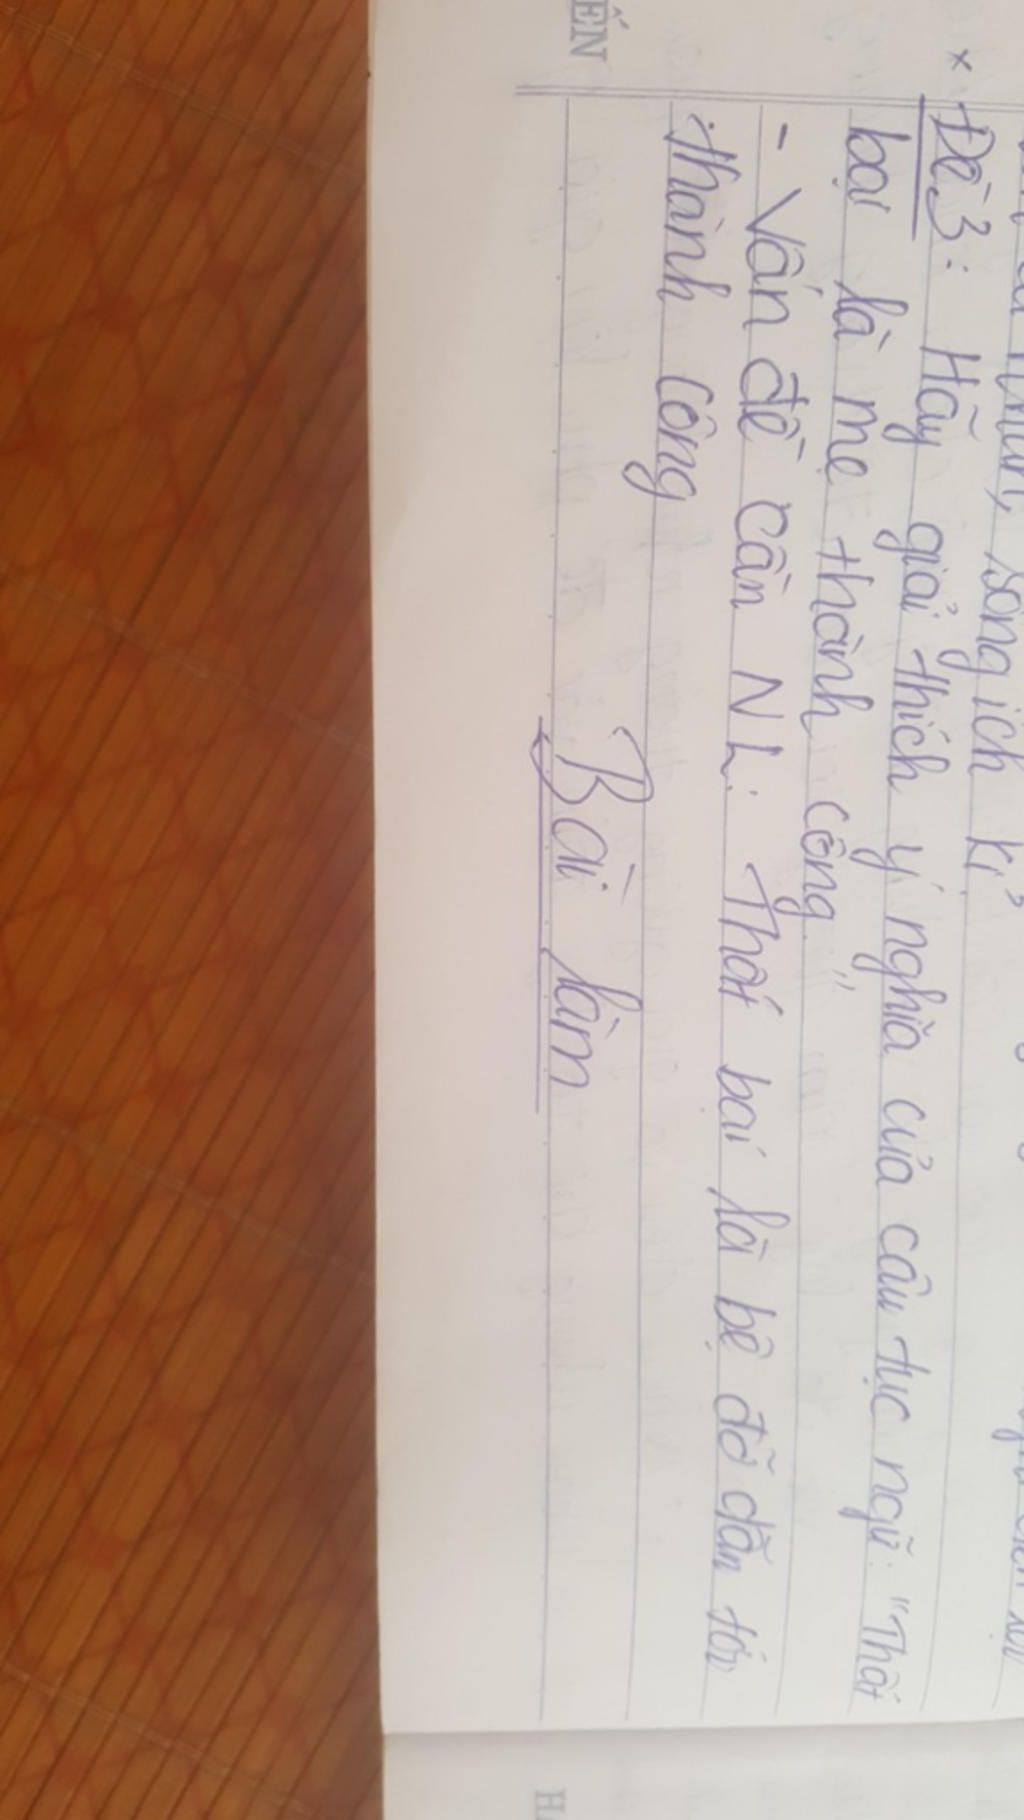 sống ích kỉ
* Đề 3: Hãy giải thích ý nghĩa của câu tục ngữ: "Thất
bại là mẹ thành công"
- Vấn đề cần NL: Thất bại là bệ đỡ dẫn tới
thành công
Bài làm
ẾN